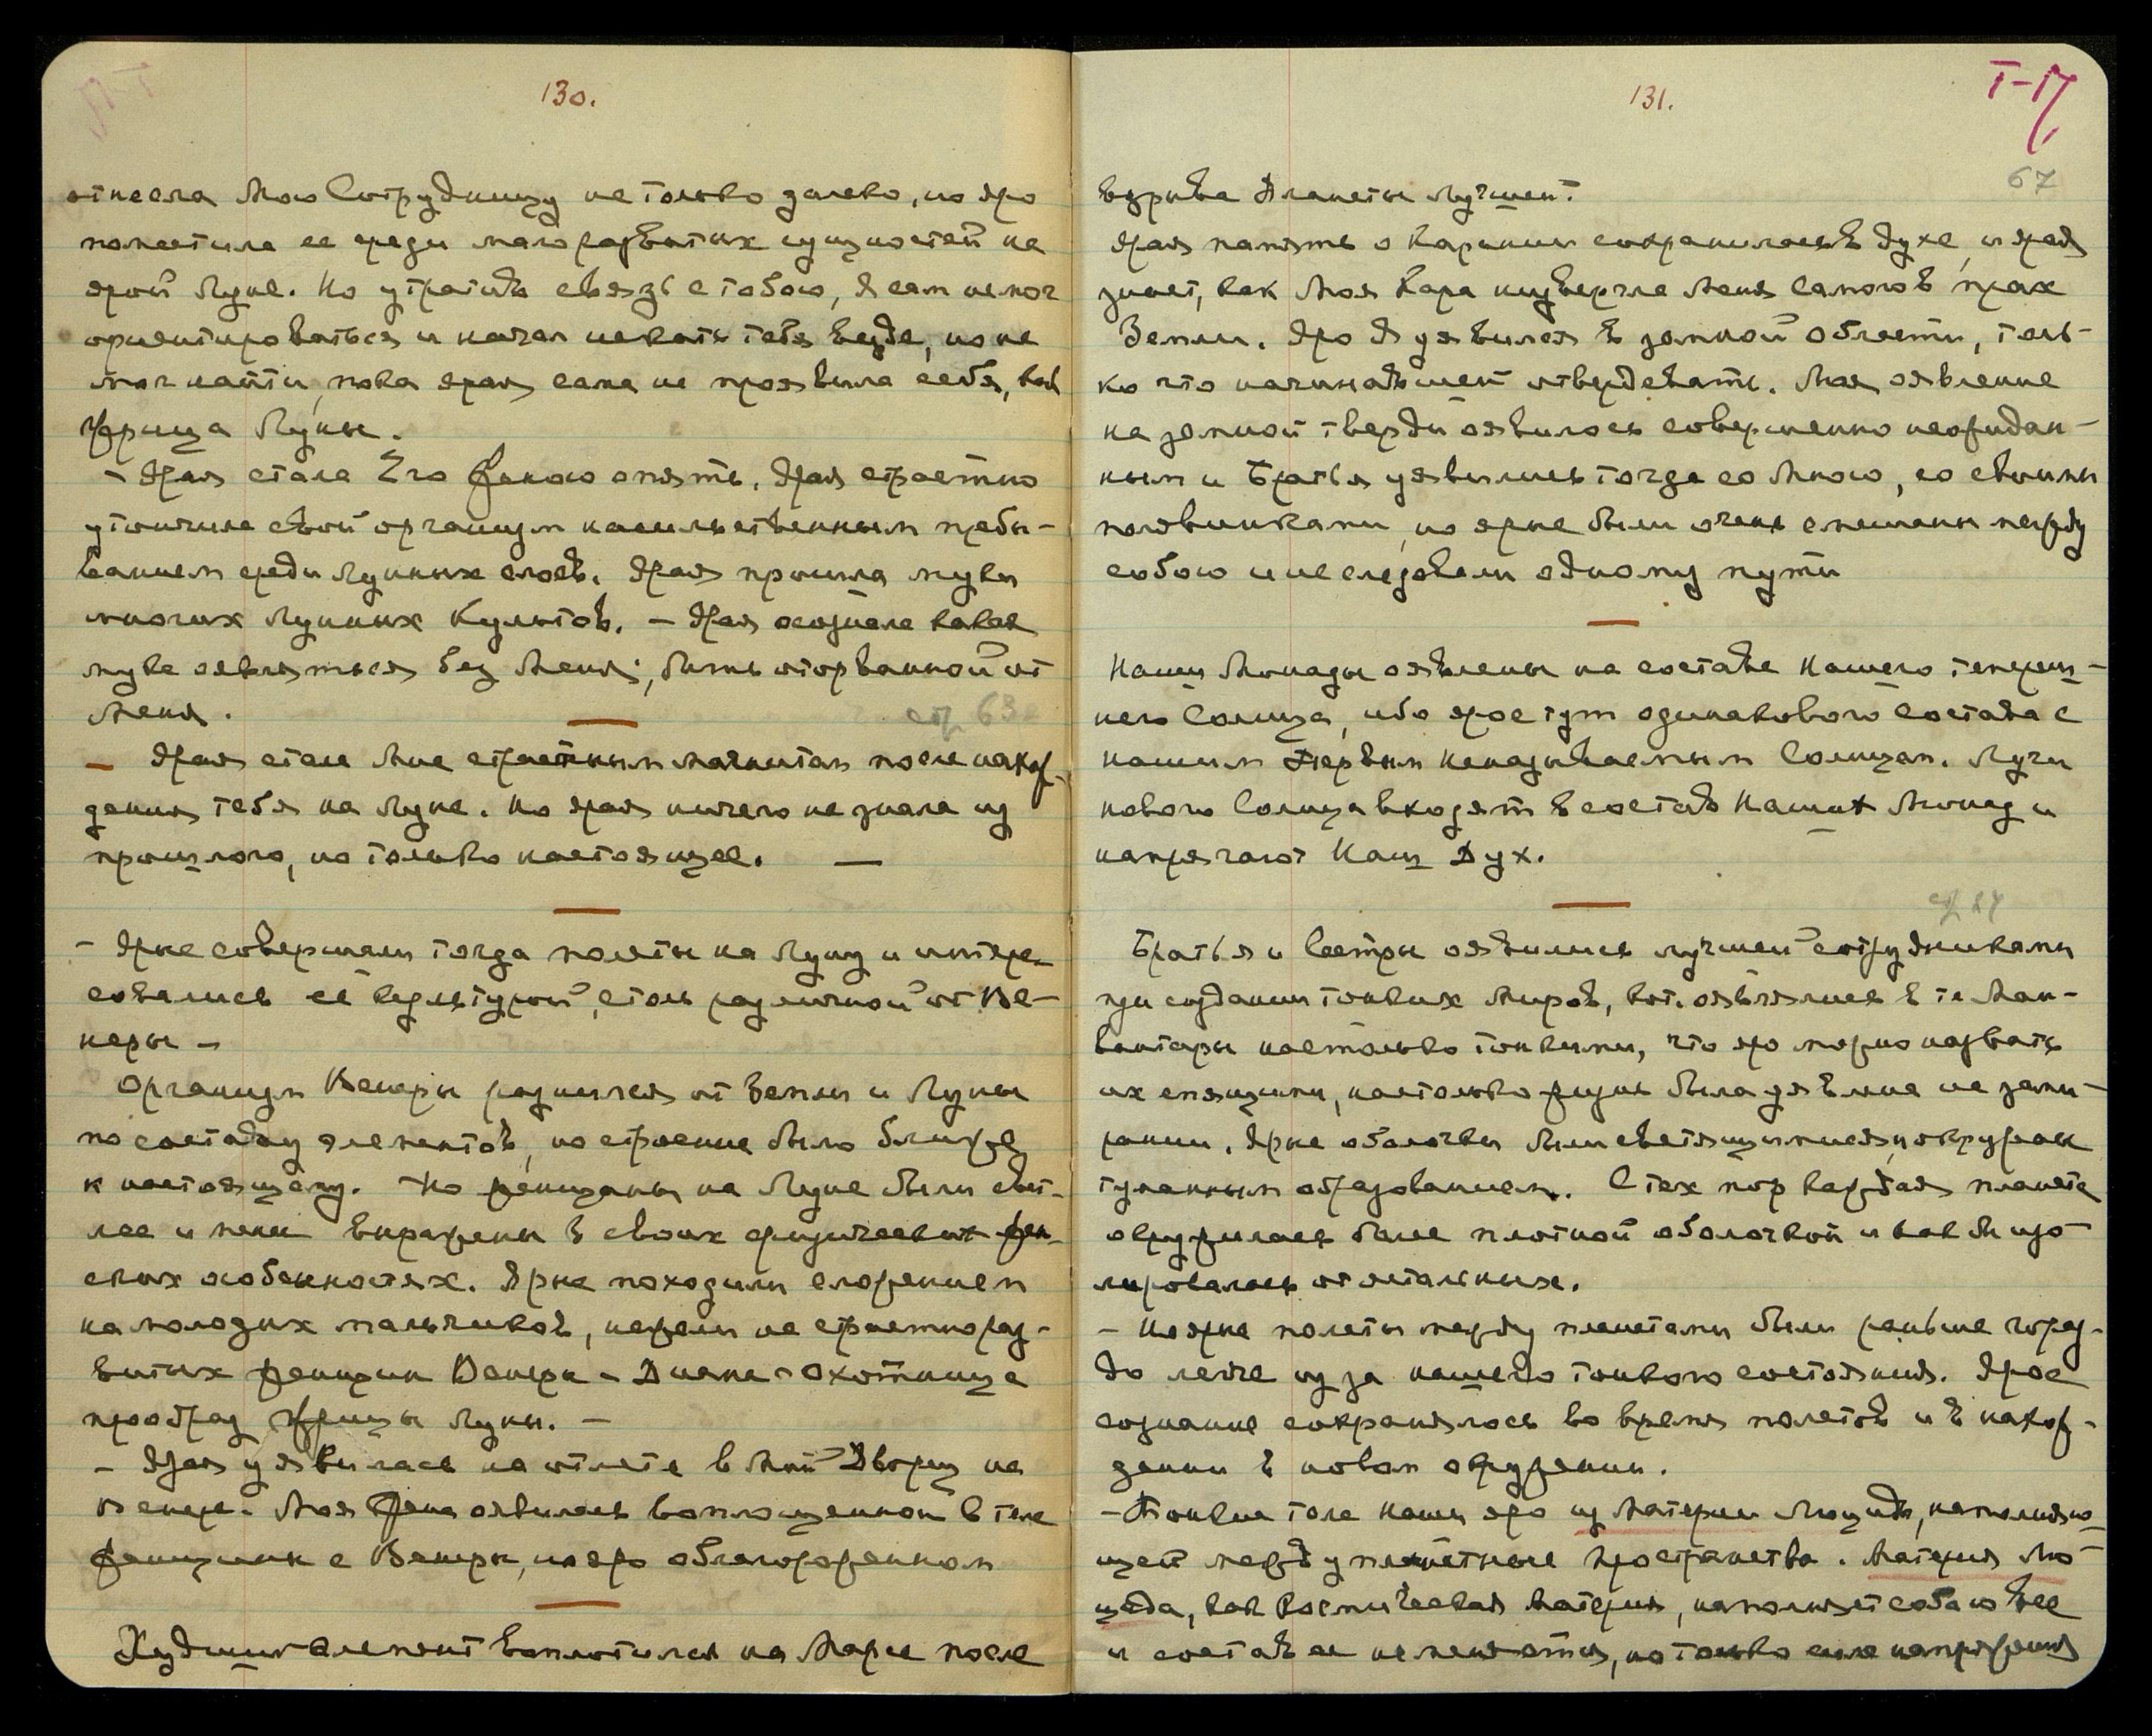 130.
отнесла Мою Сотрудницу не только далеко, но яро
поместила ее среди малоразвитых сущностей на
ярой Луне. Но утратив связь с тобою, Я сам не мог
ориентироваться и начал искать тебя везде, но не
мог найти, пока ярая сама не проявила себя, как
Жрица Луны.
– Ярая стала Его Женою опять. Ярая страстно
утончила свой организм насильственным пребы-
ванием среди Лунных слоев. Ярая прошла муки
многих Лунных Культов. – Ярая осознала какая
мука являться без Меня, быть оторванной от
Меня.
стр 63
– Ярая стала Мне страстным магнитом после нахож-
дения тебя на Луне. Но ярая ничего не знала из
прошлого, но только настоящее. –
– Ярые совершали тогда полеты на Луну и интере-
совались её культурой, столь различной от Ве-
неры –
Организм Венеры разнился от Земли и Луны
по составу элементов, но строение было ближе
к настоящему. Но женщины на Луне были свет-
лее и менее выражены в своих физических жен-
ских особенностях. Ярые походили сложением
на молодых мальчиков, нежели на страстно раз-
витых женщин Венеры – Диана – охотница
прообраз Жрицы Луны. –
– Ярая уявилась на отлете в Мой Дворец на
Венере. Моя Жена оявилась воплощенной в теле
женщины с Венеры, но яро облагороженном
Худший элемент воплотился на Марсе после
131.
T-17
67
взрыва Планеты Лучшей.
Ярая память о Карании сохранилась в духе, и ярая
знает, как Моя Кара низвергла Меня Самого в прах
Земли. Яро Я уявился в земной области, толь-
ко что начинавшей отвердевать. Мое оявление
на земной тверди оявилось совершенно неожидан-
ным и Братья уявились тогда со Мною, со своими
половинками, но ярые были очень смешаны между
собою и исследовали одному пути
Наши Монады оявлены на составе Нашего тепереш-
него Солнца, ибо ярое тут одинакового состава с
нашим Первым Неназываемым Солнцем. Лучи
нового Солнца входят в состав Наших Монад и
напрягают Наш Дух.
стр 87
Братья и Сестры оявились лучшей сотрудниками
при создании тонких Миров, кот. оявлялись в те Ман-
вантары настолько тонкими, что яро можно назвать
их спящими, настолько жизнь была уявлена не зами-
рании. Ярые оболочки были светящимися, и окружен
туманным образованием. С тех пор каждая планета
окружилась более плотной оболочкой и как бы изо-
лировалась от остальных.
– Но ярые полеты между планетами были раньше горад-
до легче из за нашего тонкого состояния. Ярое
сознание сохранялось во время полетов и в нахож-
дении в новом окружении.
– Тонкие тела наши яро из Материи Люцида, наполняю-
щей междупланетные пространства. Материя Лю-
цида, как космическая материя, наполняет собою все
и состав ее не меняется, но только сила напряжения